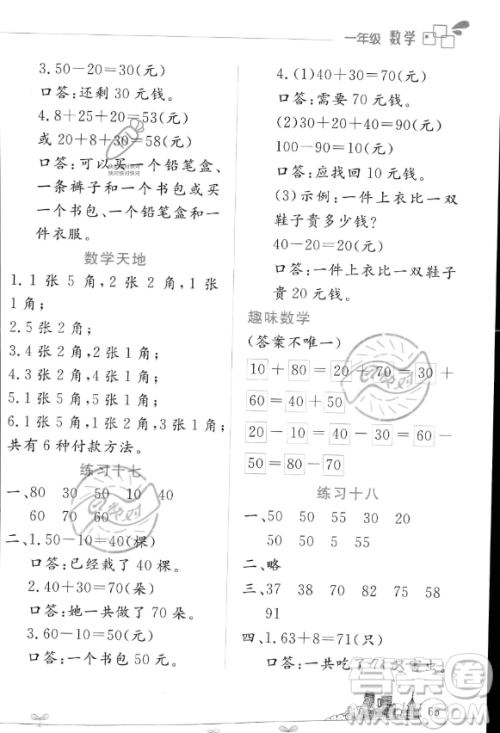 一年级 数学
3.50－20＝30(元)
口答:还剩 30 元钱。
4.8＋25＋20＝53(元)
或 20＋8＋30＝58(元)
口答:可以买一个铅笔盒、
一条裤子和一个书包或买
一个书包、一个铅笔盒和一
件衣服。
数学天地
1.1 张 5 角,2 张 2 角,1
张 1 角;
2.5 张 2 角;
3.4 张 2 角,2 张 1 角;
4.2 张 2 角,
5.1 张 5 角,
6.1 张 5 角,
共有 6 种付款方法。
练习十七
一、80 30 50 10 40
60 70 60
二、1.50－10＝40(棵)
口答:已经栽了 40 棵。
2.40＋30＝70(朵)
口答:她一共做了 70 朵。
3.60－10＝50(元)
口答:一个书包 50 元。
4.(1)40＋30＝70(元)
口答:需要 70 元钱。
(2)30＋20＋40＝90(元)
100－90＝10(元)
口答:应找回 10 元钱。
(3)示例:一件上衣比一双
鞋子贵多少钱?
40－20＝20(元)
口答:一件上衣比一双鞋子
贵 20 元钱。
趣味数学
(答案不唯一)
10＋80＝20＋70＝30＋
60＝40＋50＝90
20－10＝50－40＝60－
50＝80－70＝10
练习十八
一、50 50 55 30 20
50 50 5 55
二、略
三、37 38 70 82 75 58
91
四、1.63＋8＝71(只)
口答:一共吃了
答案圈